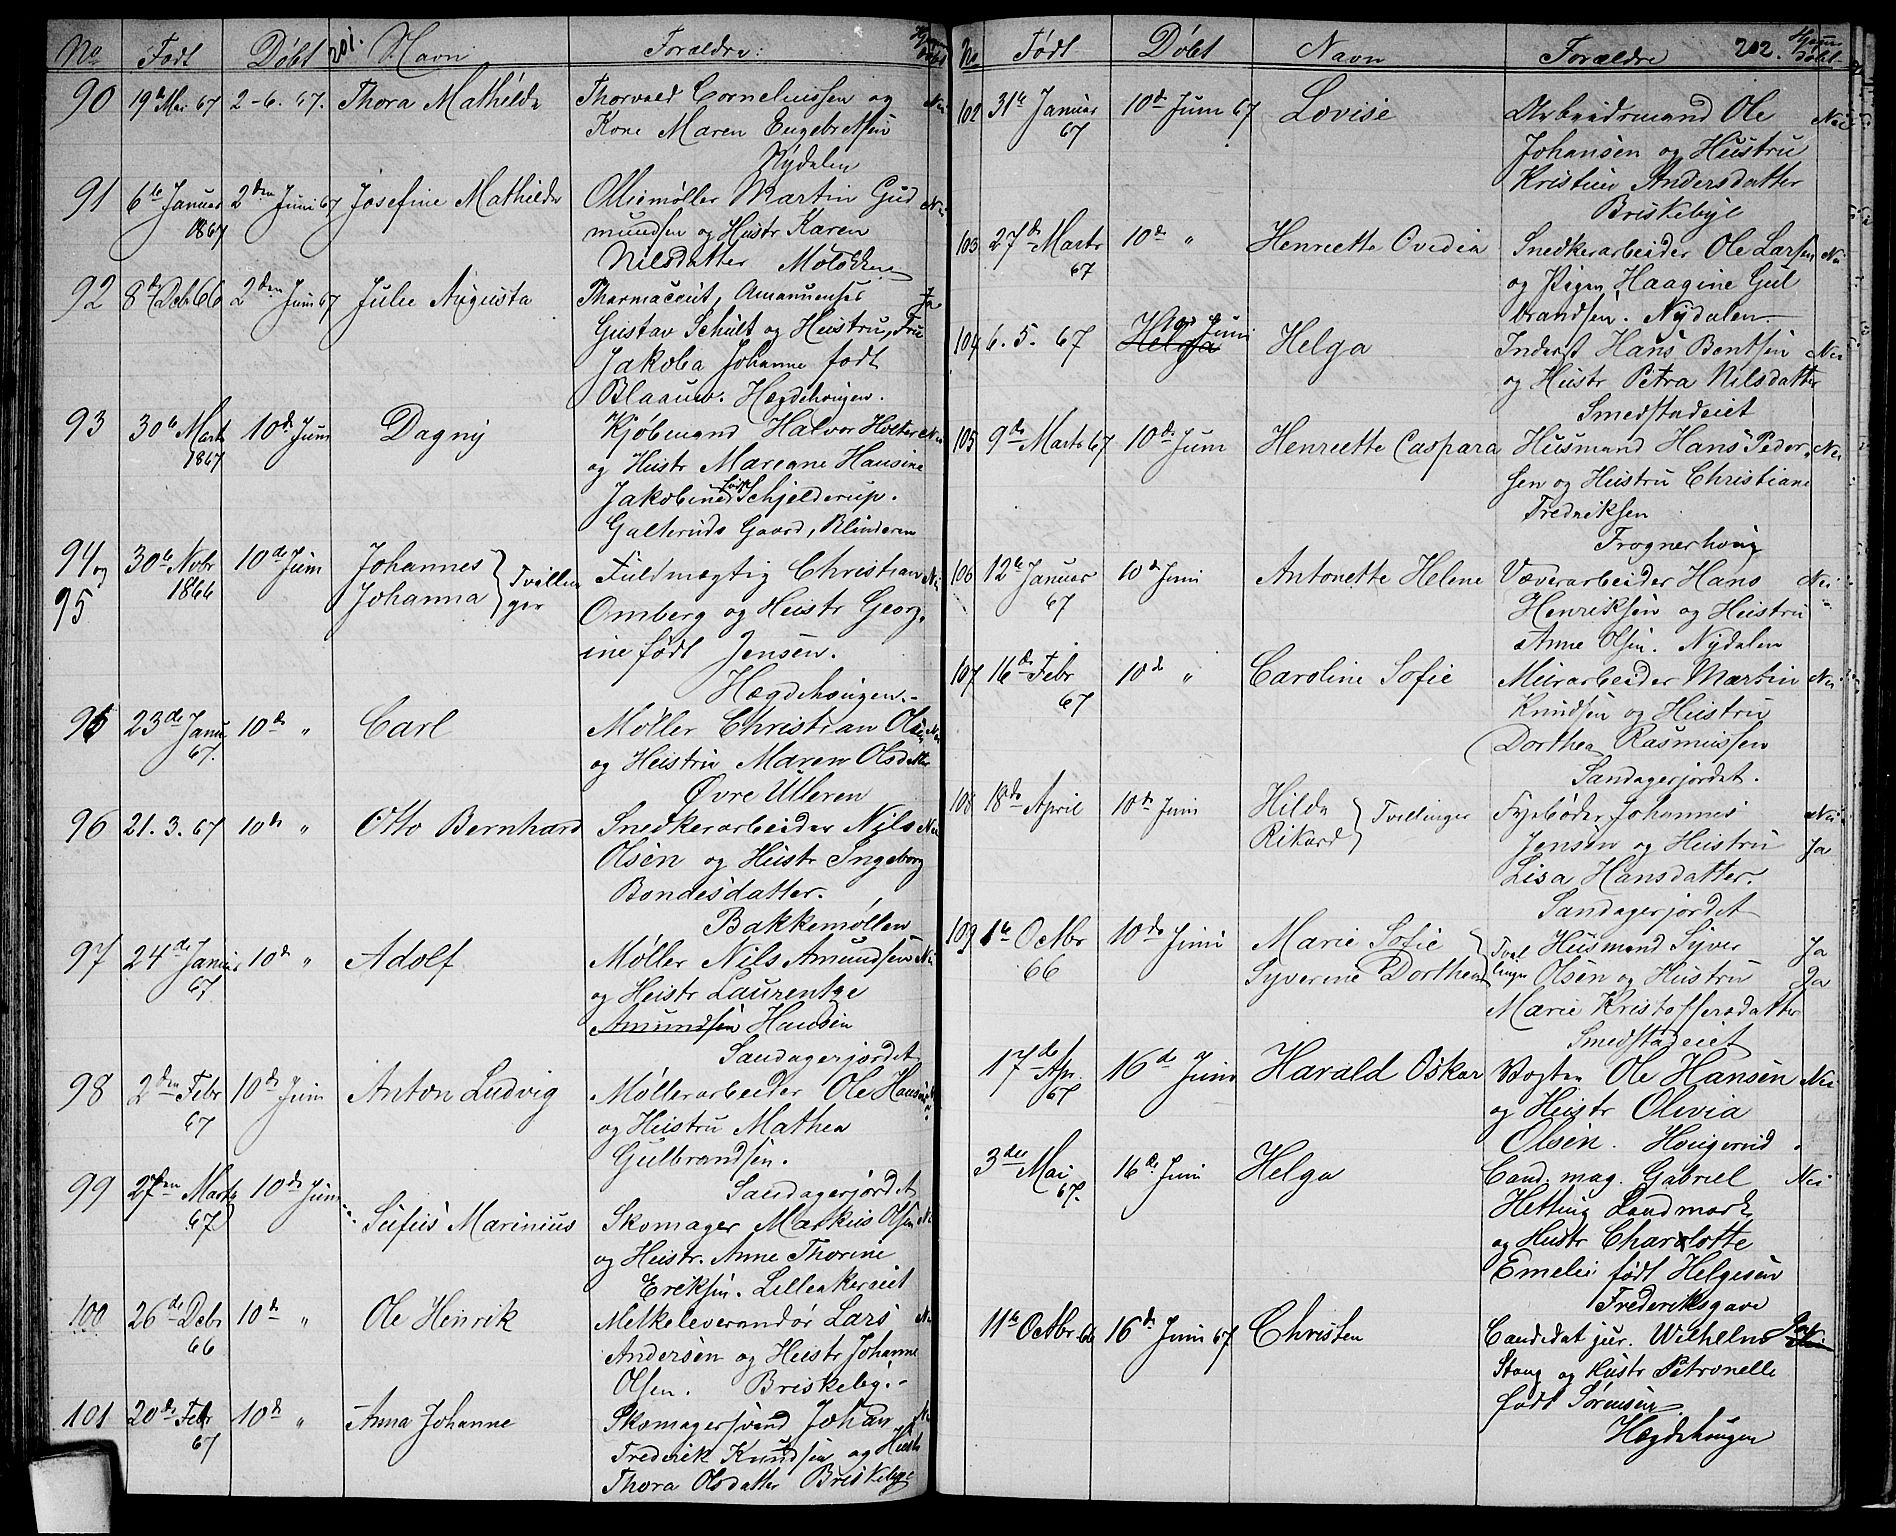 No Født Døbt 201. Navn Forældre: Hjem døbt
90 19de Mai 67 2-6. 67. Thora Mathilde Thorvald Corneliussen og Nei
Kone Maren Engebretsen
Nydalen
91 6te Januar 1867 2den Juni 67 Josefine Mathilde Oliemøller Martin Gud Nei
mundsen og Hustr Karen
Nilsdatter Mølokken
92 8de Deb 66 2den Juni 67 Julie Augusta Pharmaceut, Amanuenses Ja
Gustav Schult og Hustru, Fru
Jakoba Johanne født
Blaauw. Hægdehougen.
93 30te Marts 1867 10de Juni Dagny Kjøbmand Halvor Holter Nei
og Hustr Mareane Hansine
Jakobine født Schjelderup.
Galteruds Gaard, Blinderen
94 og 95 30te Nobr 1866 10de Juni Johannes Johanna } Tvillin ger Fuldmægtig Christian Nei
Omberg og Hustr Georg,
ine født Jensen.
Hægdehougen.
95 23de Janu 67. 10de " Carl Møller Christian Olsen Nei
og Hustru Maren Olsdatter
Øvre Ulleren
96 21. 3. 67 10de " Otto Bernhard Snedkerarbeider Nils Nei
Olsen og Hustr Ingeborg
Bondesdatter.
Bakkemøllen
97 24de Januar 67 10de " Adolf Møller Nils Amundsen Nei
og Hustr Laurentze
Amundsen Hansen
Sandagerjordet
98 2den Febr 67 10de Juni Anton Ludvig Møllerarbeider Ole Hansen
og Hustru Mathea
Gulbrandsen.
Sandagerjordet
99 27den Marts 67 10de Juni Sufus Marinius Skomager Markus Olsen Nei
og Hustr. Anne Thorine
Ereksen. Lilleakereiet
100 26de Debr 66 10de " Ole Henrik Melkeleverandør Lars Nei
Andersen og Hustr Johanne
Olsen. Briskeby.
101 20de Febr 67 10de " Anna Johanne Skomagersvend Johan Nei
Frederik Knudsen og Hustr
Thora Olsdatter Briskeby
No Født Døbt Navn Forældre 202. Hjem døbt
102 31te Januar 67 10de Juni 67 Lovise Arbeidsmand Ole Nei
Johansen og Hustru
Kristine Andersdatter
Briskebye
103 27de Marts 67 10de " Henrette Ovedia Snedkerarbeider Ole Larsen Nei
og Pigen Haagine Gul
brandsen. Nydalen
104 6. 5. 67 Helga 10de Juni Helga Inderst Hans Bentsen Nei
og Hustr Petra Nilsdatter
Smedstadeiet
105 9de Marts 67 10de Juni Henreette Caspara Husmand Hans Peder, Nei
sen og Hustru Christiane
Fredriksen
Frognerhoug
106 12te Januar 67 10de Juni Antonette Helene Væverarbeider Hans Nei
Henriksen og Hustru
Anne Olsen. Nydalen
107 16de Febr 67 10de " Caroline Sofie Murarbeider Martin Nei
Knudsen og Hustru
Dorthea Rasmussen
Sandagerjordet.
108 18de April 10de Juni Hilda Rikard } Tvillinger Fyrbøder Johannes Nei
Jensen og Hustru Ja
Lisa Hansdatter.
Sandagerjordet
109 1te Octbr 66 10de Juni Marie Sofie Syverine Dorthea } Tvil linger Husmand Syver Ja
Olsen og Hustru Ja
Marie Kristoffersdatter
Smedstadeiet
17de Ap. 67 16de Juni Harald Oskar Vogter Ole Hansen Nei
og Hustr Olivia
Olsen. Hougerud
3die Mai 67. 16de Juni Helga Cand. mag. Gabriel Nei
Hetting Landmark
og Hustr Charlotte
Emelie født Helgesen
Frederiksgave
11te Octbr 66 16de Juni 67 Christen Candidat jur. Wilhelm Ja
Stang og Hustr Petronelle
født Sørensen
Hægdehougen